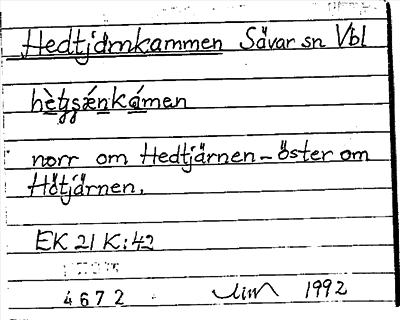 Hedtjärnkammen Sävar sn Vbl
hètjsǽnkámen
norr om Hedtjärnen - öster om
Hötjärnen.
EK 21 K:42
4672 1992